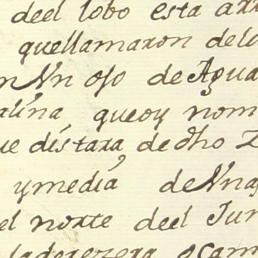 deel lobo esta
quellamaron delo
Vn ojo de Agua
alina queoy nom
ue distara de dho
y media de Vna
el norte deel Jun